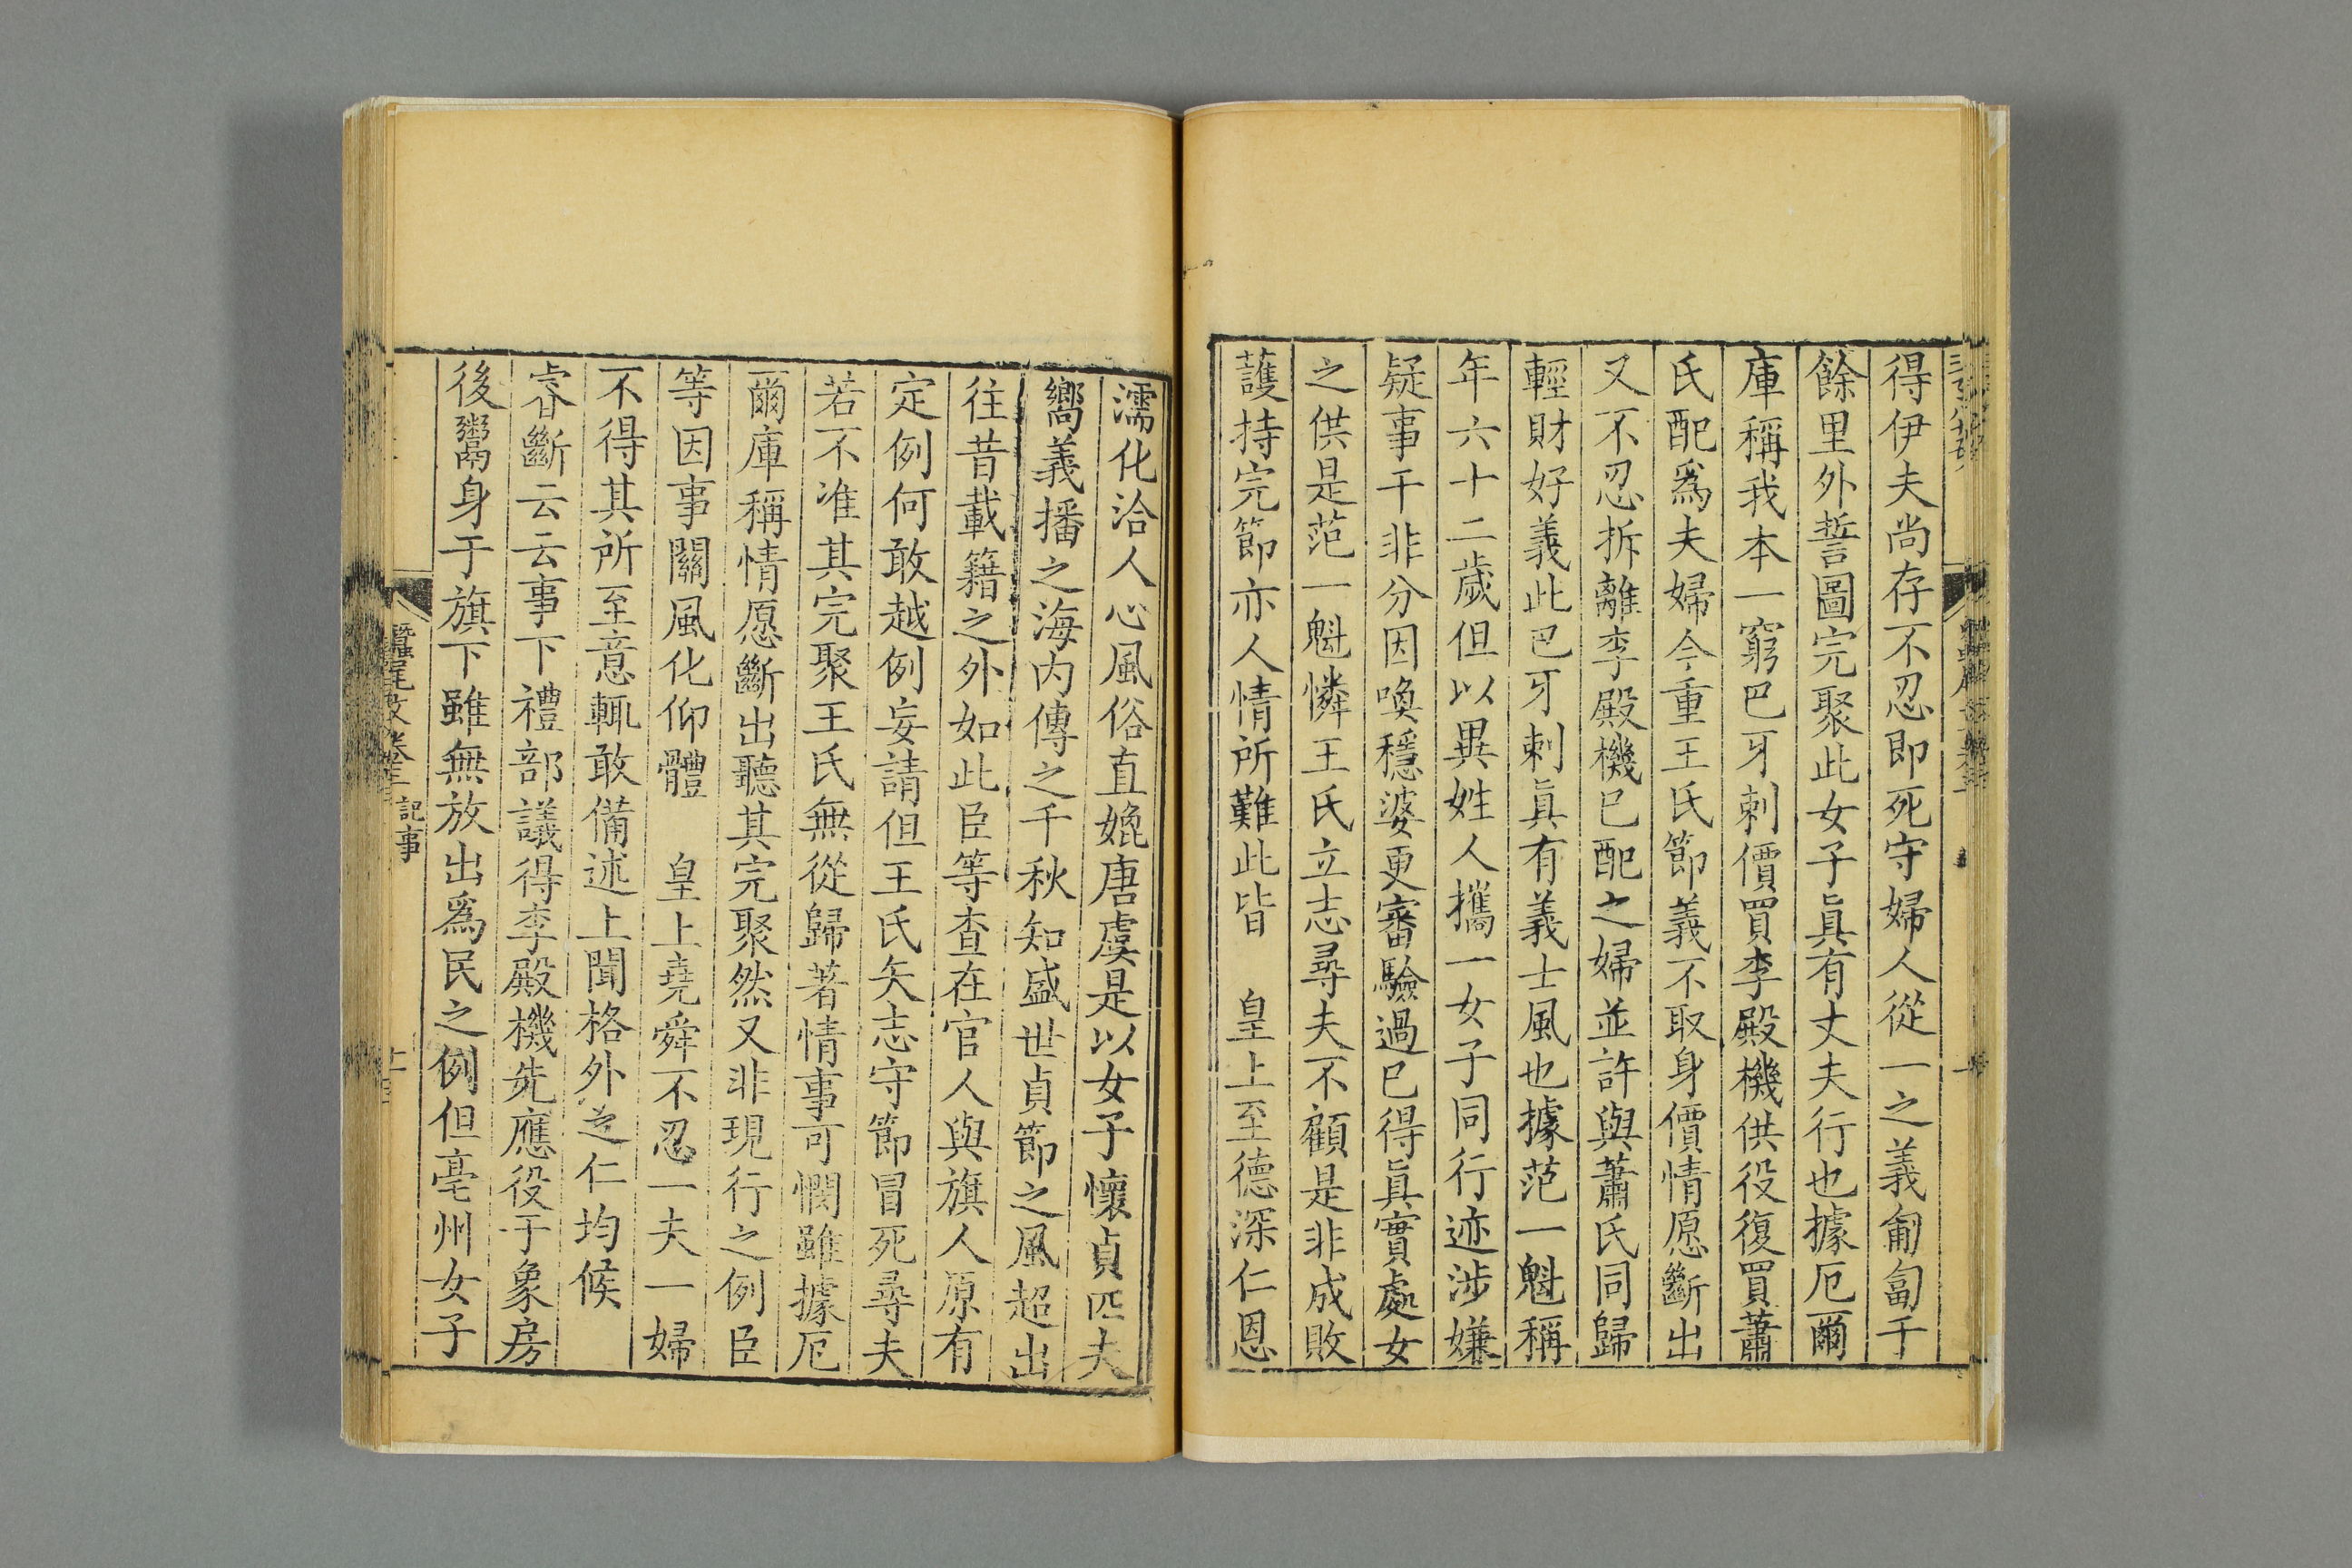 得伊夫尚存不忍即死守婦人從一之義匍匐千
餘里外誓圖完聚此女子眞有丈夫行也據厄爾
庫稱我本一窮巴牙剌價買李殿機供役復買蕭
氏配爲夫婦今重王氏節義不取身價情愿斷出
又不忍拆離李殿機已配之婦並許與蕭氏同歸
輕財好義此巴牙剌眞有義士風也據范一魁稱
年六十二歲但以異姓人攜一女子同行迹涉嫌
疑事干非分因喚穩婆更審驗過已得眞實處女
之供是范一魁憐王氏立志尋夫不顧是非成敗
護持完節亦人情所難此皆　皇上至德深仁恩
濡化洽人心風俗直媲唐虞是以女子懷貞匹夫
嚮義播之海内傳之千秋知盛世貞節之風超出
往昔載籍之外如此臣等查在官人與旗人原有
定例何敢越例妄請但王氏矢志守節冒死尋夫
若不准其完聚王氏無從歸著情事可憫雖據厄
爾庫稱情愿斷出聽其完聚然又非現行之例臣
等因事關風化仰體　皇上堯舜不忍一夫一婦
不得其所至意輒敢備述上聞格外之仁均候
睿斷云云事下禮部議得李殿機先應役于象房
後鬻身于旗下雖無放出爲民之例但亳州女子
記事